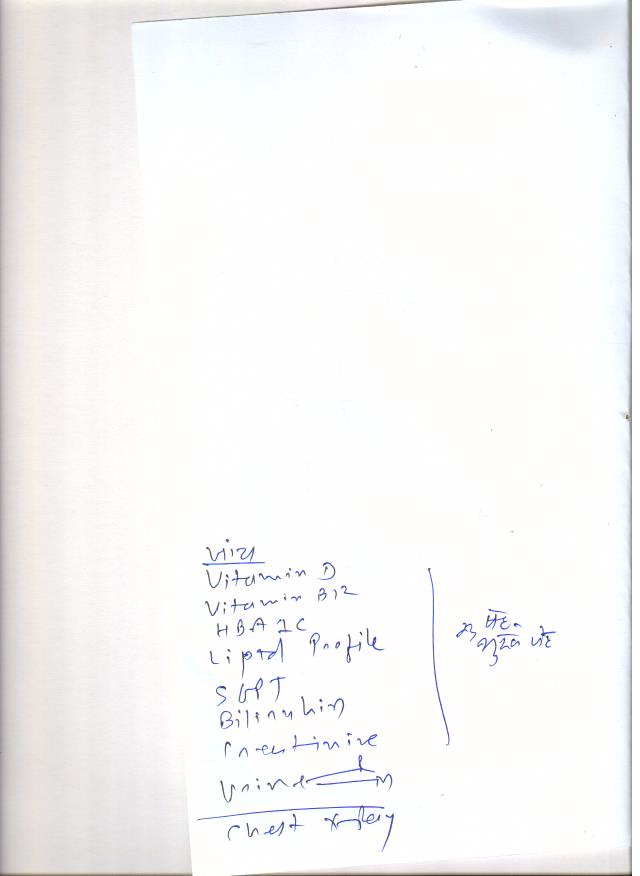 Vitamin D
Vitamin B12
HBA1C
Lipid Profile
SGPT
Bilirubin
Creatinine
Urine R M
Chest X-Ray